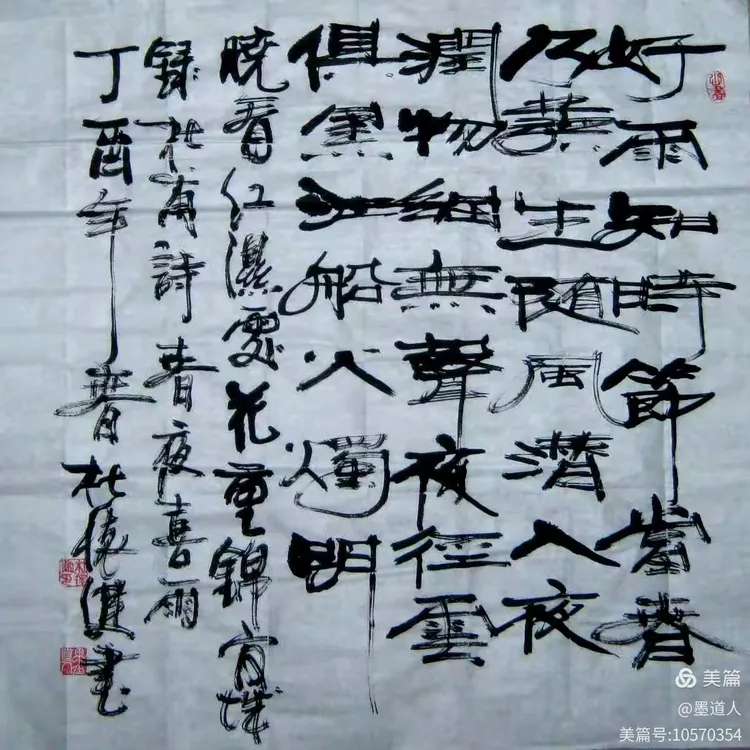 好雨知時節當春
乃發生随風潛入夜
潤物細無聲夜徑雲
俱黑江船火燭明
曉看紅濕處花重錦官城
錄杜甫詩春夜喜雨
丁酉年春杜書
美篇
@墨道人
美篇号:10570354